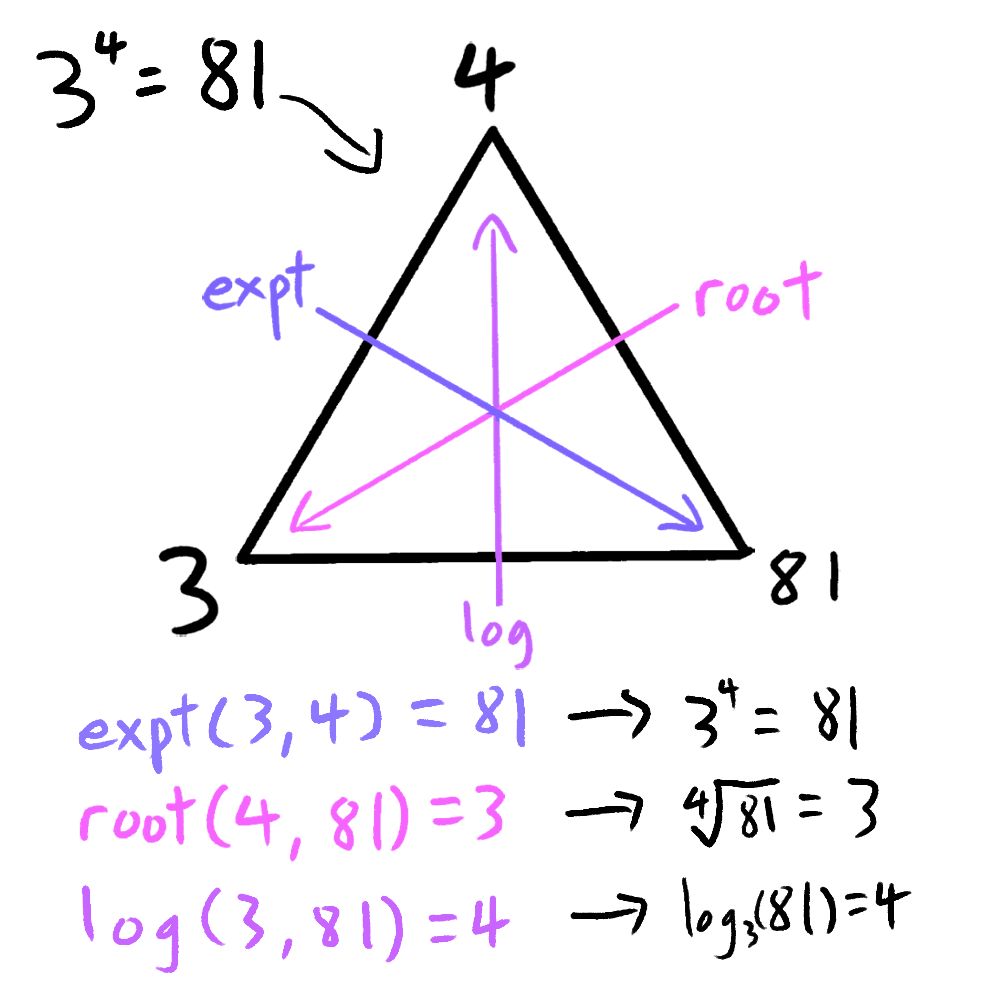 3⁴ = 81
4
expt
root
3
81
log
expt(3, 4) = 81 → 3⁴ = 81
root(4, 81) = 3 → ⁴√81 = 3
log(3, 81) = 4 → log₃(81) = 4